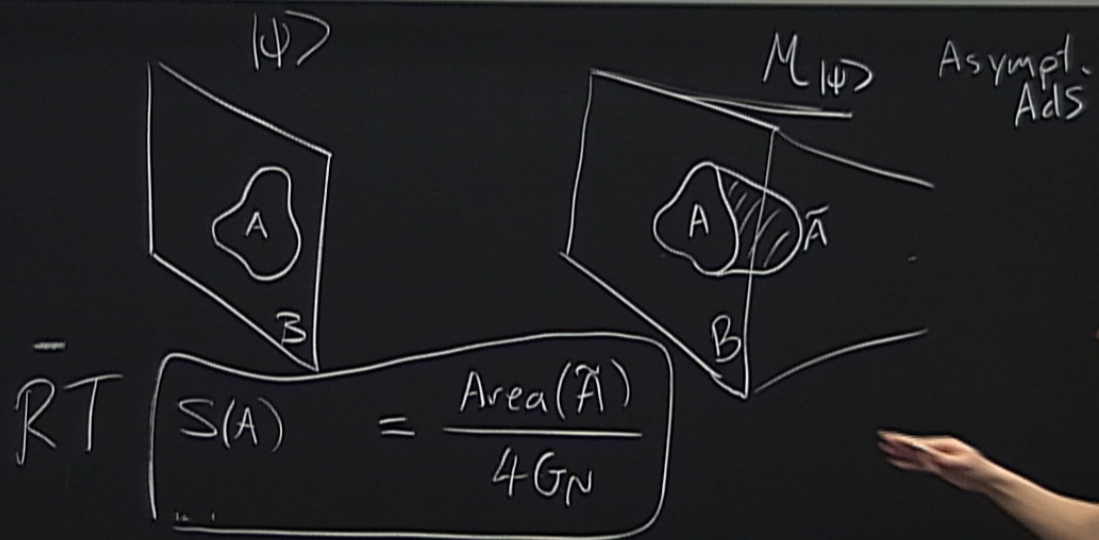 |ψ⟩
A
B
M|ψ⟩
Asympt.
AdS
A
Ã
B
RT
S(A) = Area(Ã) / 4G_N